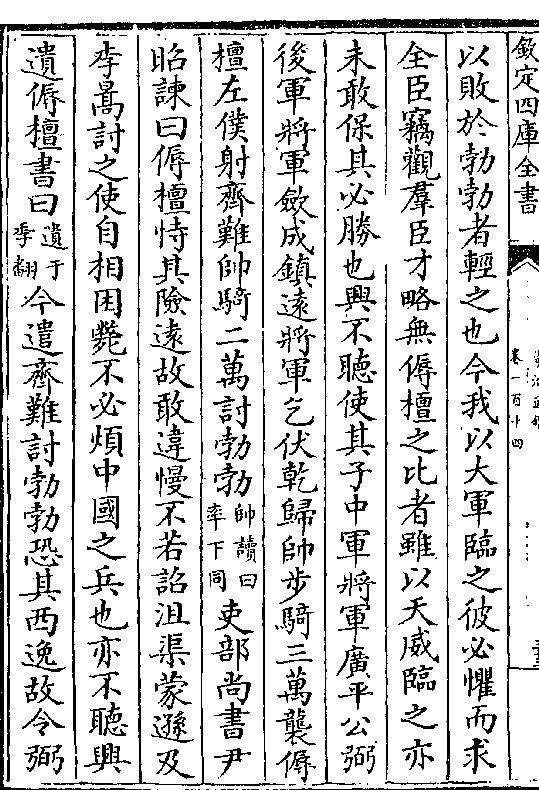 欽定四庫全書
卷一百十四
以敗於勃勃者輕之也今我以大軍臨之彼必懼而求
全臣竊觀羣臣才略無傉檀之比者雖以天威臨之亦
未敢保其必勝也興不聽使其子中軍將軍廣平公弼
後軍將軍斂成鎮遠將軍乞伏乾歸帥步騎三萬襲傉
檀左僕射齊難帥騎二萬討勃勃帥讀曰率下同吏部尚書尹
昭諫曰傉檀恃其險遠故敢違慢不若詔沮渠蒙遜及
李暠討之使自相困斃不必煩中國之兵也亦不聽興
遺傉檀書曰遺于季翻今遣齊難討勃勃恐其西逸故令弼